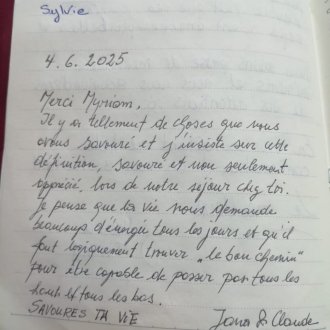 Sylvie
4.6.2025
Merci Myriam,
Il y a tellement de choses que nous
avons savouré et j'insiste sur cette
définition, savouré et non seulement
apprécié, lors de notre séjour chez toi.
Je pense que ta vie nous demande
beaucoup d'énergie tous les jours et qu'il
faut logiquement trouver „le bon chemin"
pour être capable de passer par tous les
hauts et tous les bas.
SAVOURES TA VIE
Jana & Claude